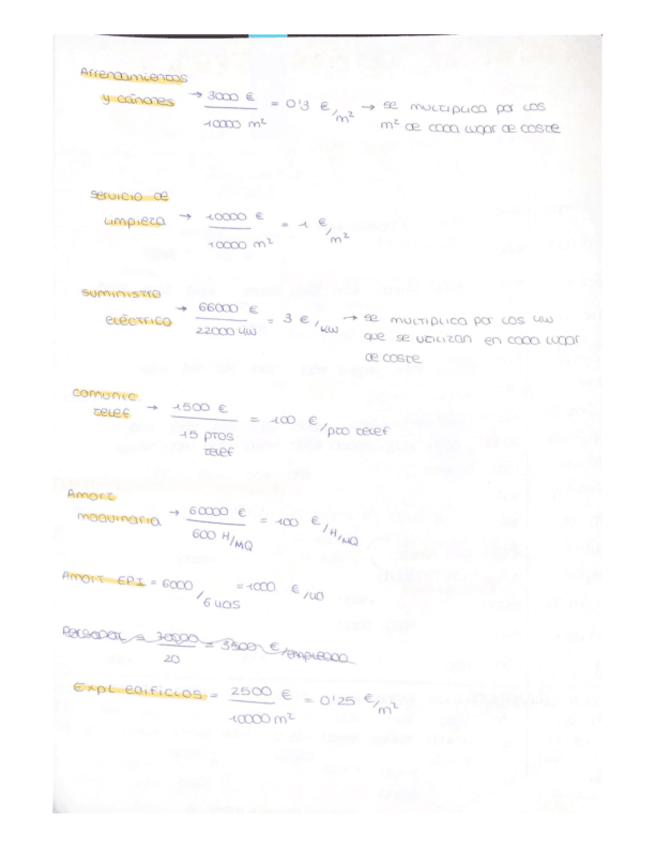 Arrendamientos
y cánones → 3000 € / 10000 m² = 0'3 €/m² → se multiplica por los
m² de cada lugar de coste
servicio de
limpieza → 10000 € / 10000 m² = 1 €/m²
suministro
eléctrico → 66000 € / 22000 kW = 3 €/kW → se multiplica por los kW
que se utilizan en cada lugar
de coste
comunic
telef → 1500 € / 15 ptos telef = 100 €/pto telef
Amort
maquinaria → 60000 € / 600 H/MQ = 100 €/H/MQ
Amort EPI = 6000 / 6 uds = 1000 €/ud
Personal = 70000 / 20 = 3500 €/empleado
Expl edificios = 2500 € / 10000 m² = 0'25 €/m²